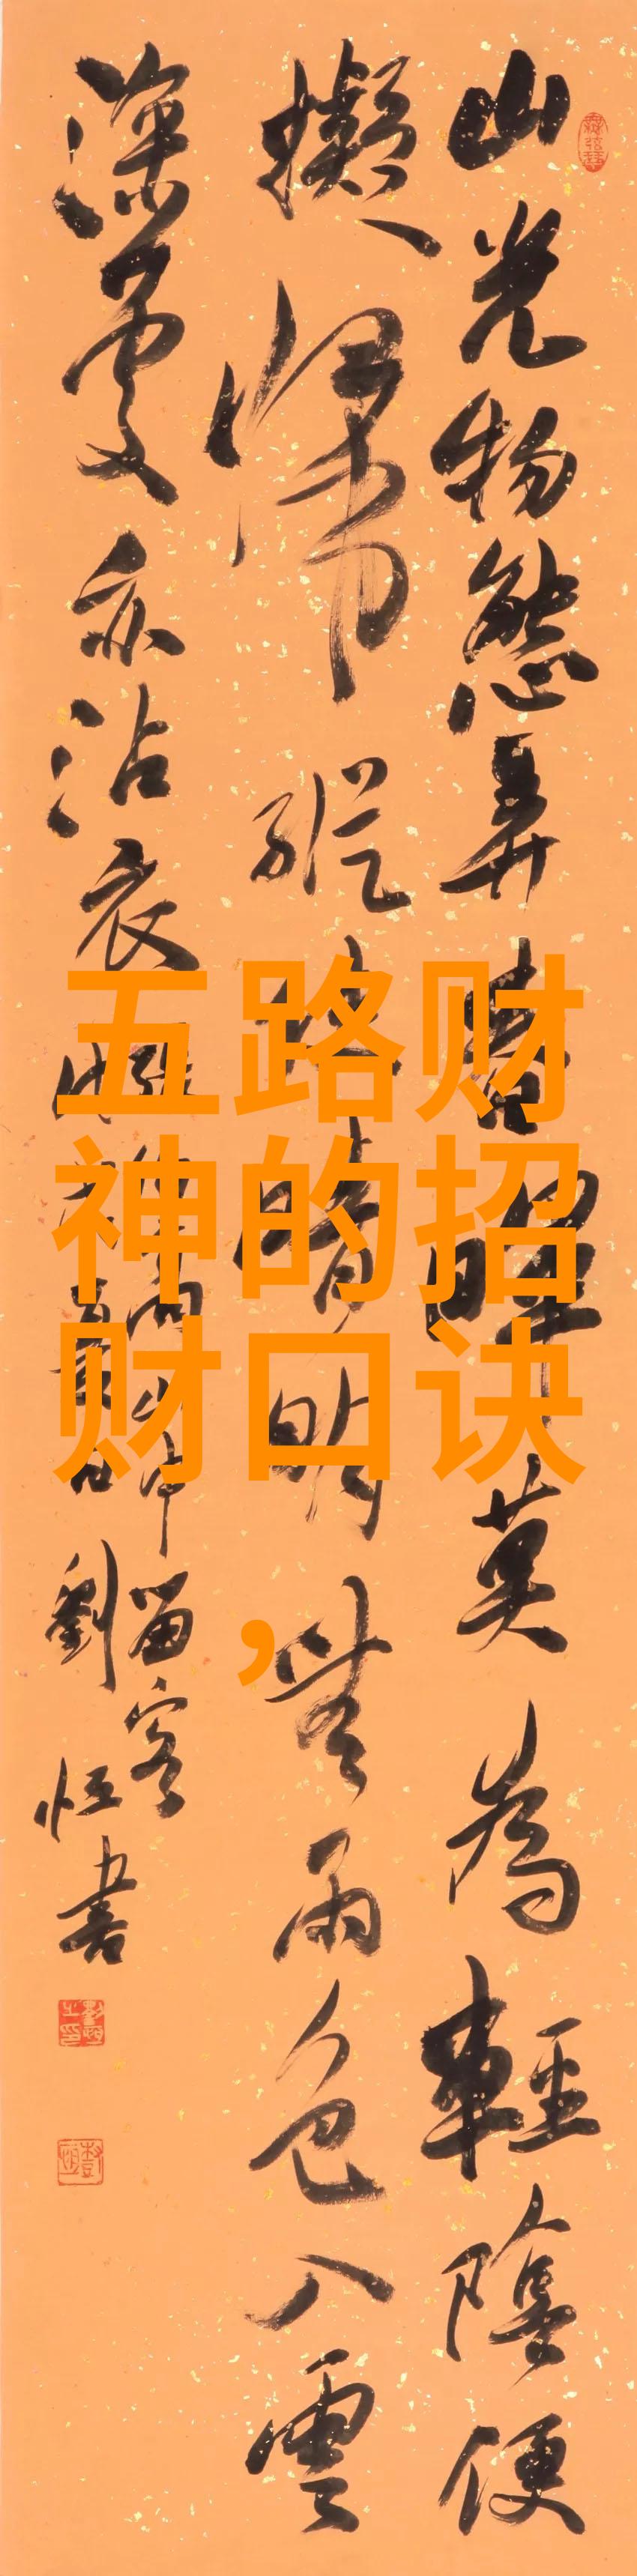 山光物態弄春暉莫為輕陰便
擬歸縱使晴明無雨色入雲
深處亦沾衣
張旭
山中留客
劉恒書
五路财
神的招
财口诀
，